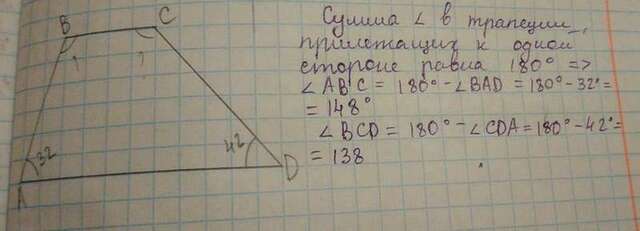 B
C
?
?
32
42
A
D
Сумма ∠ в трапеции,
прилежащих к одной
стороне равна 180° =>
∠ABC = 180° - ∠BAD = 180° - 32° =
= 148°
∠BCD = 180° - ∠CDA = 180° - 42° =
= 138